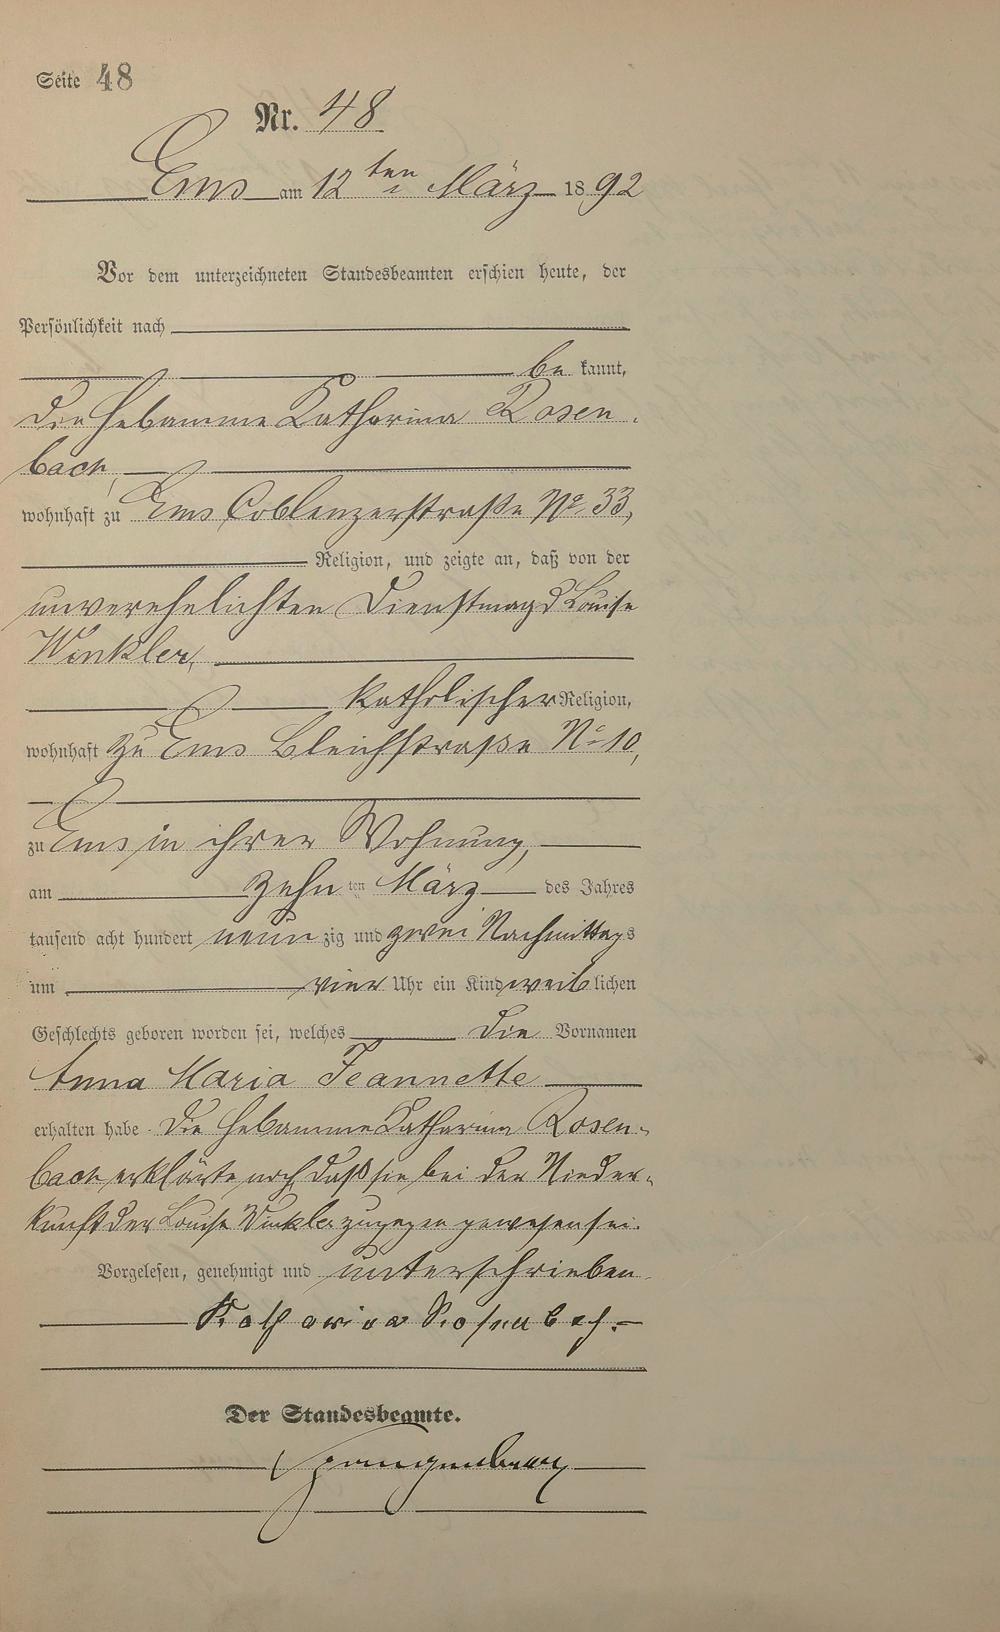 Seite 48
Nr. 48
Ems am 12ten März 1892
Vor dem unterzeichneten Standesbeamten erschien heute, der
Persönlichkeit nach
be kannt,
die Hebamme Katharina Rosen-
bach,
wohnhaft zu Ems Coblenzerstraße No. 33,
Religion, und zeigte an, daß von der
unverehelichten Dienstmagd Louise
Winkler,
katholischer Religion,
wohnhaft zu Ems Bleichstraße No 10,
zu Ems in ihrer Wohnung,
am zehn ten März des Jahres
tausend acht hundert neun zig und zwei Nachmittags
um vier Uhr ein Kind weib lichen
Geschlechts geboren worden sei, welches die Vornamen
Anna Maria Jeannette
erhalten habe. Die Hebamme Katharina Rosen-
bach erklärte noch, daß sie bei der Nieder-
kunft der Louise Winkler zugegen gewesen sei.
Vorgelesen, genehmigt und unterschrieben
Katharina Rosenbach.
Der Standesbeamte.
Spangenberg